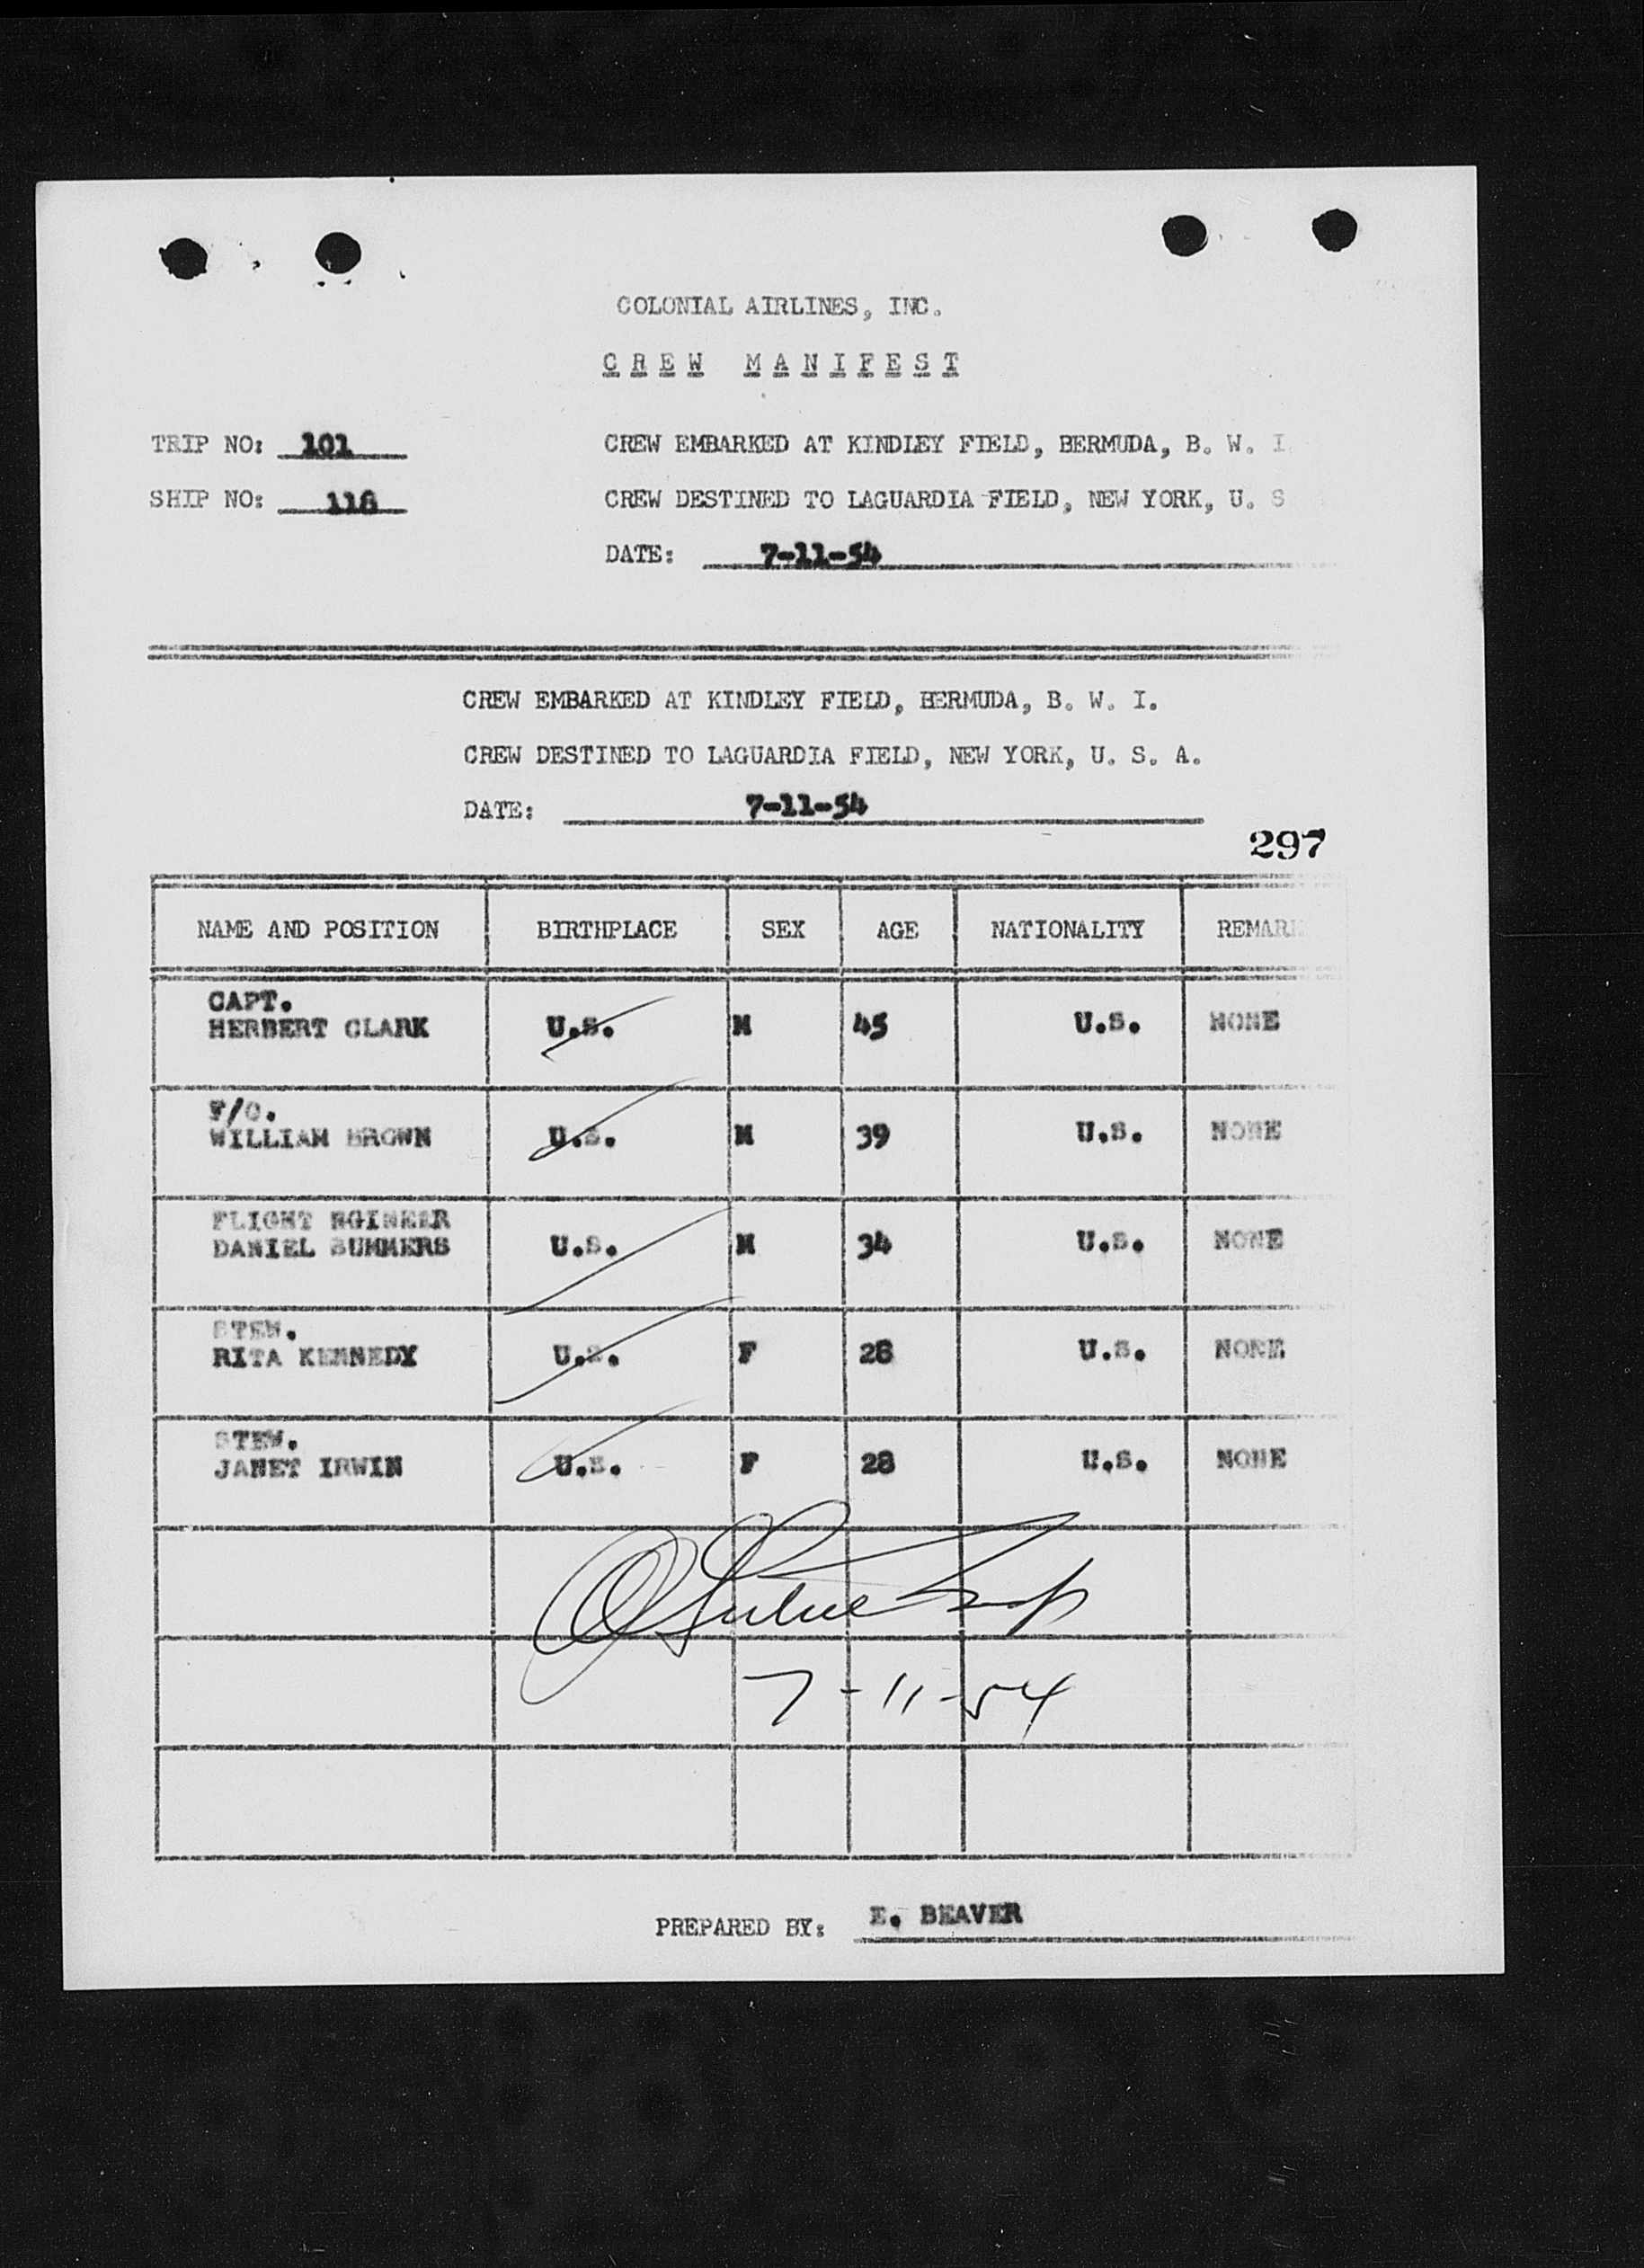 COLONIAL AIRLINES, INC.
CREW MANIFEST
TRIP NO: 101 CREW EMBARKED AT KINDLEY FIELD, BERMUDA, B. W. I
SHIP NO: 118 CREW DESTINED TO LAGUARDIA FIELD, NEW YORK, U. S
DATE: 7-11-54
CREW EMBARKED AT KINDLEY FIELD, BERMUDA, B. W. I.
CREW DESTINED TO LAGUARDIA FIELD, NEW YORK, U. S. A.
DATE: 7-11-54
297
NAME AND POSITION BIRTHPLACE SEX AGE NATIONALITY REMARK
CAPT.
HERBERT CLARK U.S. M 45 U.S. NONE
F/O.
WILLIAM BROWN U.S. M 39 U.S. NONE
FLIGHT NGINEER
DANIEL SUMMERS U.S. M 34 U.S. NONE
STEW.
RITA KENNEDY U.S. F 28 U.S. NONE
STEW.
JANET IRWIN U.S. F 28 U.S. NONE
7-11-54
PREPARED BY: E. BEAVER